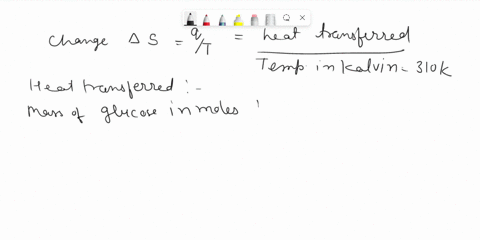 change ΔS = q/T = heat transferred
Temp in Kalvin = 310K
Heat transferred :-
Mass of glucose in moles